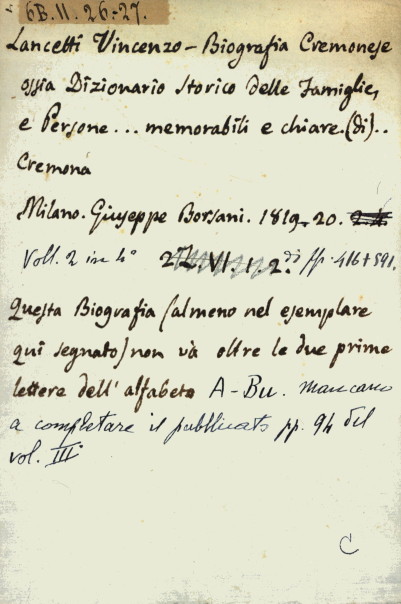 6B.II.26-27.
Lancetti Vincenzo - Biografia Cremonese
ossia Dizionario Storico delle Famiglie,
e Persone... memorabili e chiare (di)..
Cremona
Milano. Giuseppe Borsani. 1819-20.
Voll. 2 in 4° VI. 1. 2. di pp. 416+591.
Questa Biografia (almeno nel esemplare
qui segnato) non và oltre le due prime
lettere dell' alfabeto A-Bu. mancano
a completare il pubblicato pp. 94 del
vol. III°
C